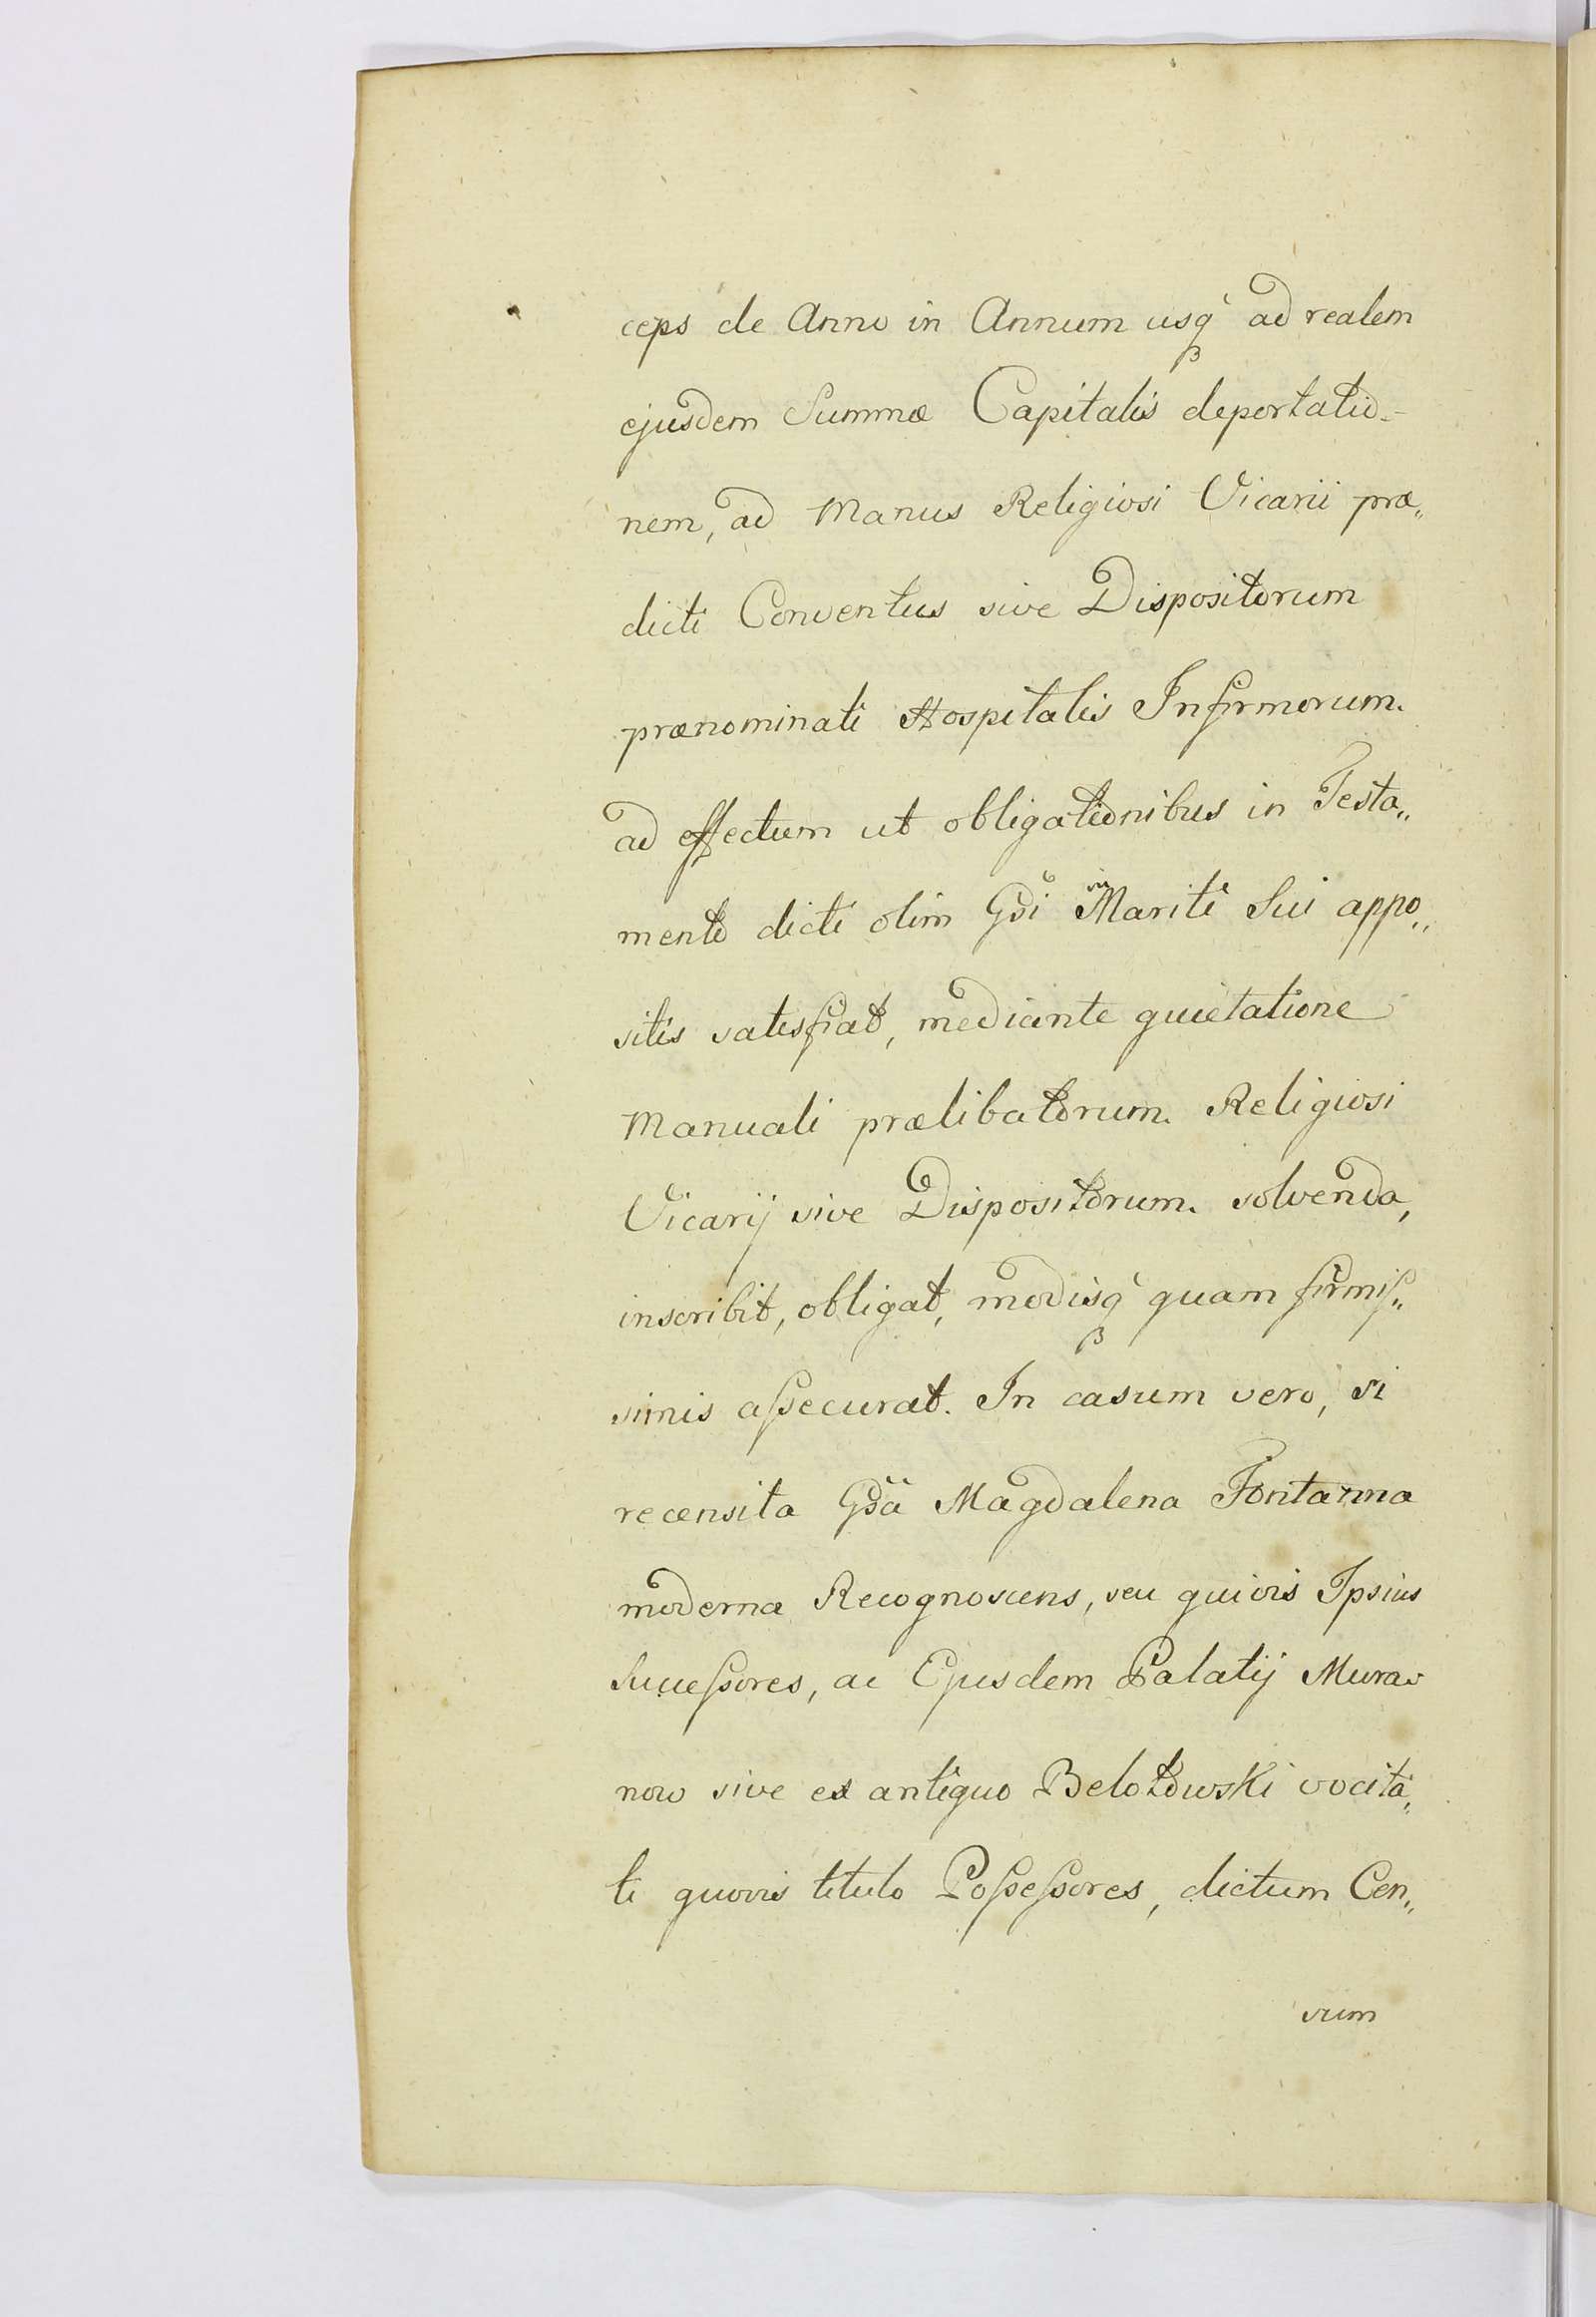 ceps de Anno in Annum usq̀ ad realem
ejusdem Summæ Capitalis deportatio-
nem, ad Manus Religiosi Vicarii præ„
dicti Conventus sive Dispositorum
prænominati Hospitalis Infirmorum.
ad effectum ut obligationibus in Testa„
mento dicti olim Gdi Mariti Sui appo„
sitis satisfiat, mediante quietatione
Manuali prælibatorum. Religiosi
Vicarij sive Dispositorum. solvenda,
inscribit, obligat, modisq̀ quam firmiſ„
simis aſsecurat. In casum vero, si
recensita Gdä Magdalena Fontanna
moderna Recognoscens, seu quivis Ipsius
Succeſsores, ac Ejusdem Palatij Mura„
now sive ex antiquo Belotowski vocita„
ti quovis titulo Poſseſsores, dictum Cen„
sum